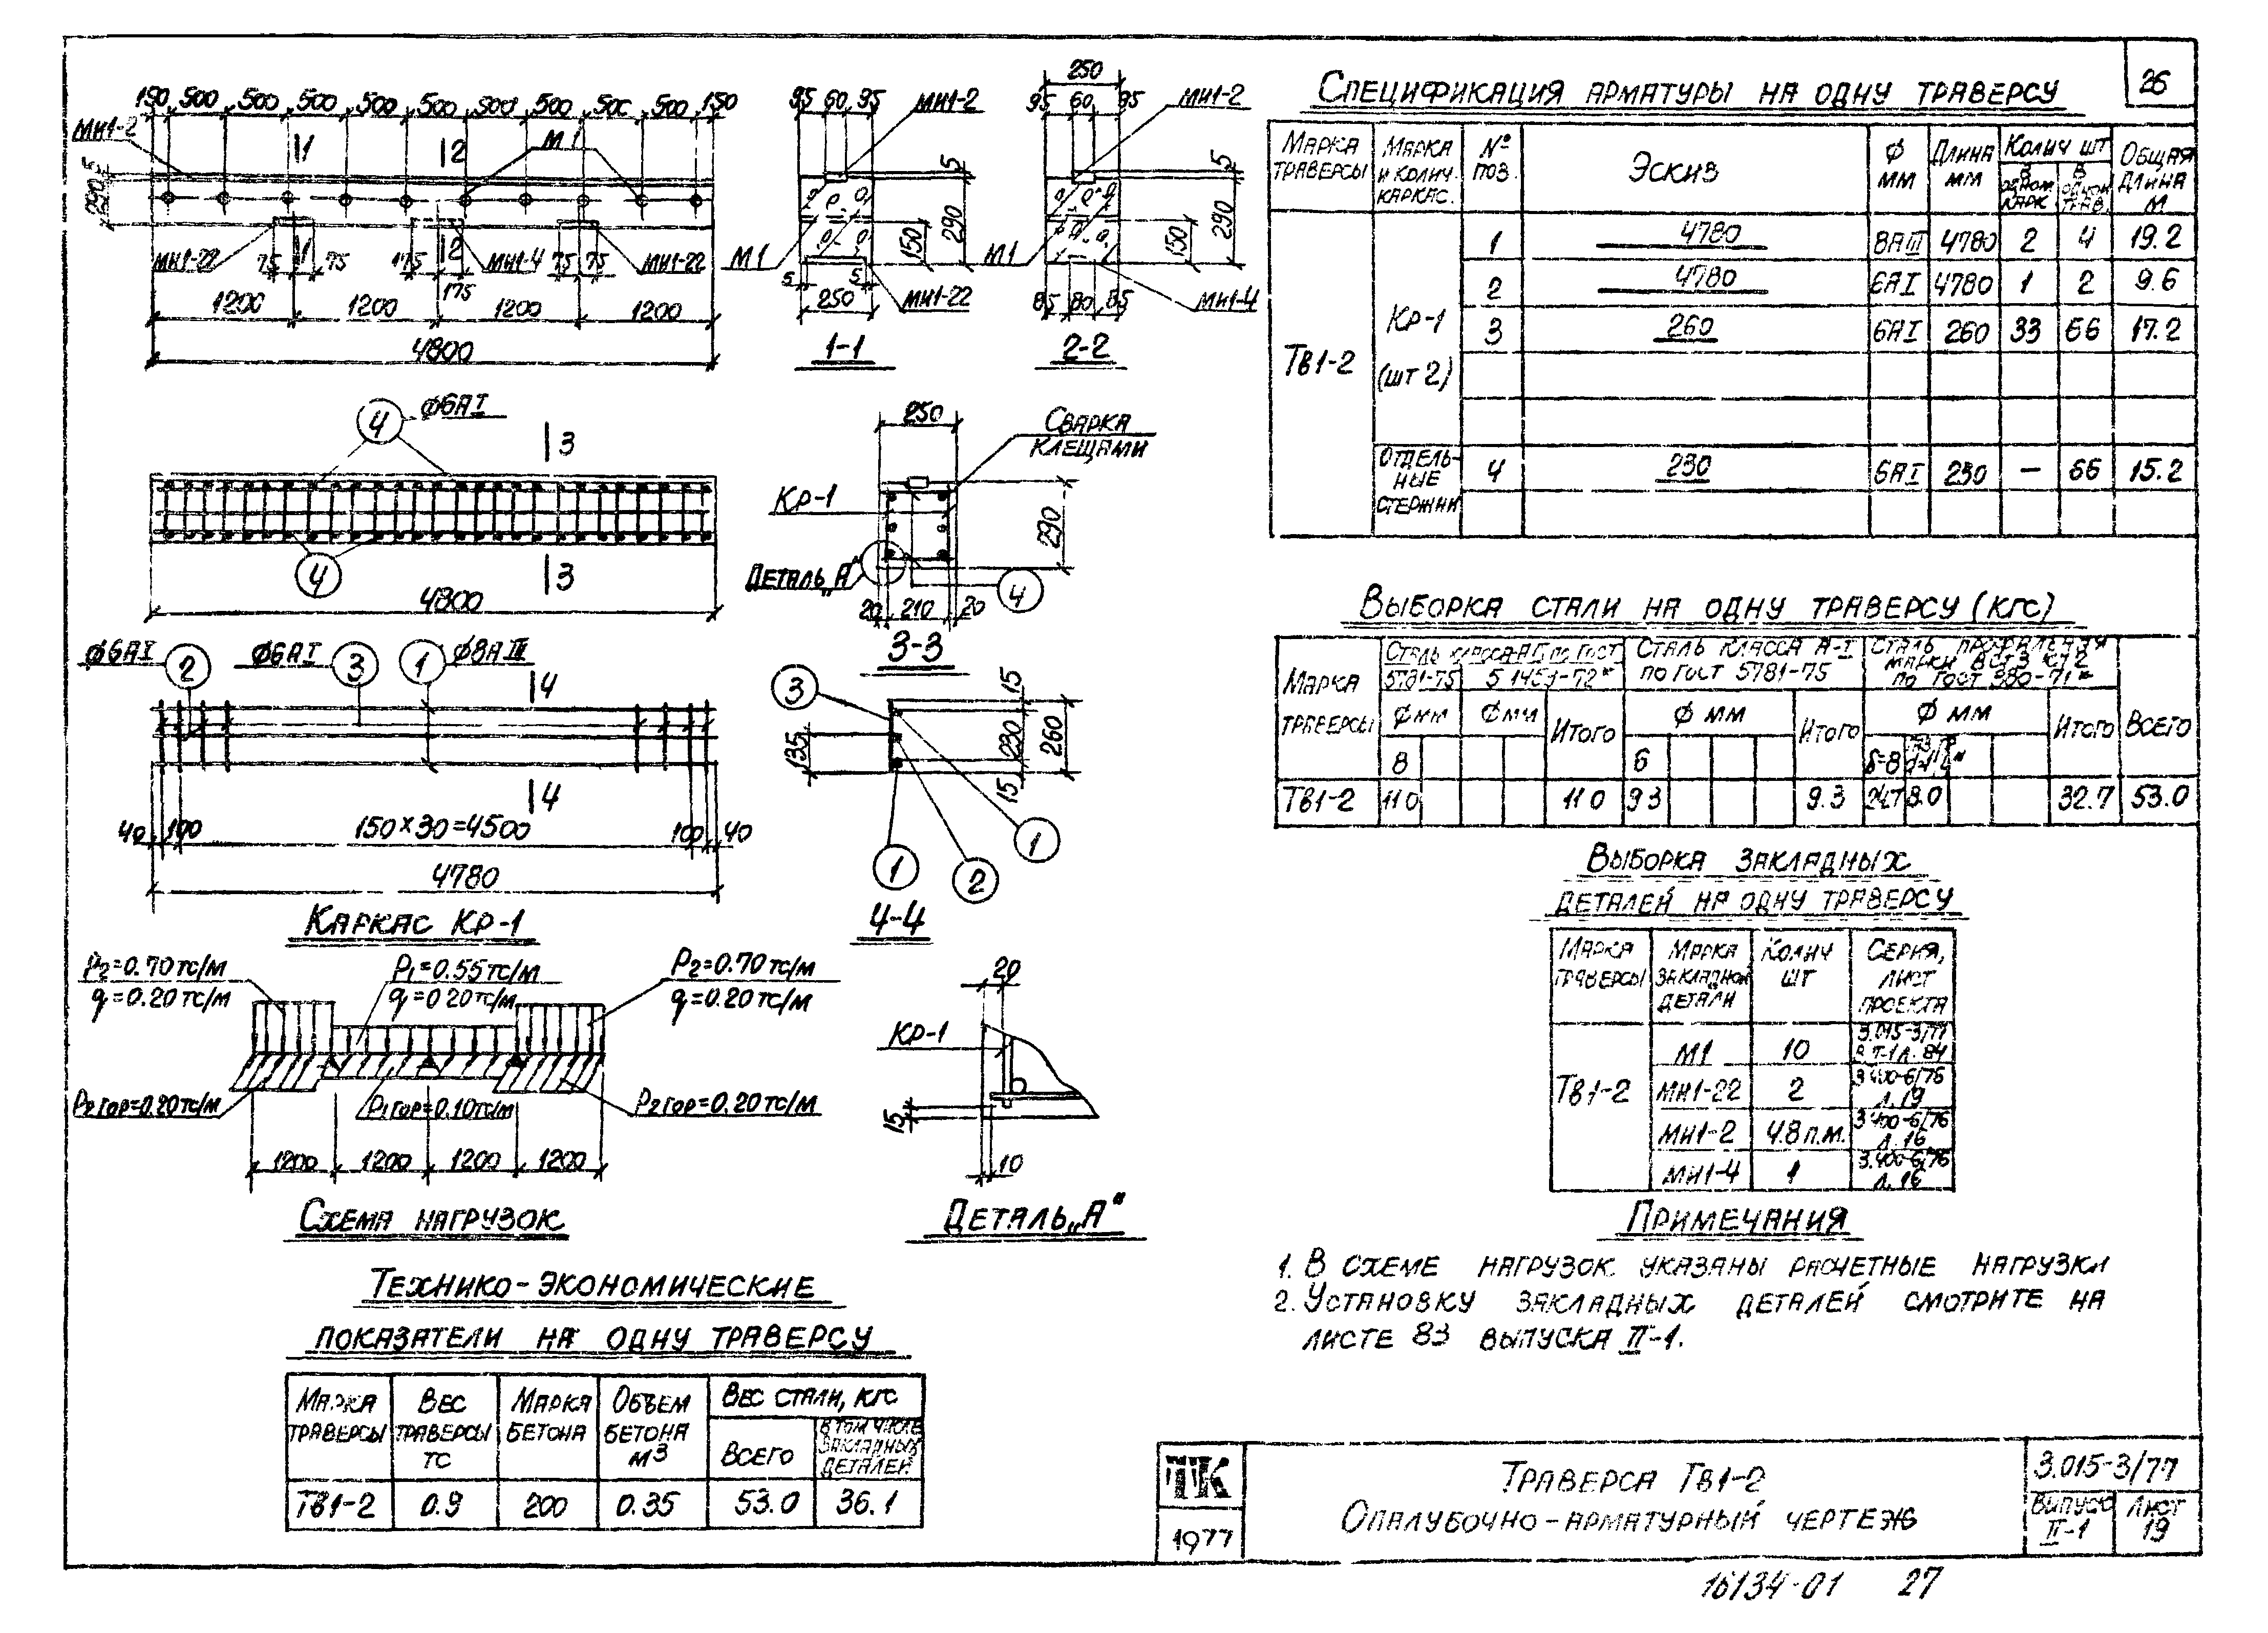 26
150 500 500 500 500 500 500 500 500 500 150
МН1-2
1 2 М1
5
290
МН1-22 75 1 75 175 2 МН1-4 75 75 МН1-22
175
1200 1200 1200 1200
4800
95 60 95
МН1-2
5
290
150
М1
5 5
250
МН1-22
1-1
250
95 60 95
МН1-2
5
290
150
М1
85 80 85
МН1-4
2-2
4 ф6АI
3
4
3
4800
250
Сварка
клещами
Кр-1
290
Деталь „А"
4
20 210 20
3-3
ф6АI 2 ф6АI 3 1 ф8АIII
4
4
40 100 150×30=4500 100 40
4780
Каркас Кр-1
3
15
135
230 260
15
1
1 2
4-4
P2=0.70тс/м
q=0.20тс/м
P1=0.55тс/м
q=0.20тс/м
P2=0.70тс/м
q=0.20тс/м
P2гор=0.20тс/м P1гор=0.10тс/м P2гор=0.20тс/м
1200 1200 1200 1200
Схема нагрузок
20
Кр-1
15
10
Деталь „А"
Технико-экономические
показатели на одну траверсу
Марка траверсы
Вес траверсы тс
Марка бетона
Объем бетона м3
Вес стали, кгс
Всего
В том числе закладных деталей
Тв1-2 0.9 200 0.35 53.0 36.1
Спецификация арматуры на одну траверсу
Марка траверсы
Марка и колич. каркас.
№ поз.
Эскиз
ф мм
Длина мм
Колич шт
В одном карк.
В одной трав.
Общая длина м
Тв1-2
Кр-1
(шт 2)
1 4780 8АIII 4780 2 4 19.2
2 4780 6АI 4780 1 2 9.6
3 260 6АI 260 33 66 17.2
Отдельные стержни
4 230 6АI 230 — 66 15.2
Выборка стали на одну траверсу (кгс)
Марка траверсы
5781-75 5.1459-72*
Сталь класса А-I
по ГОСТ 5781-75
Сталь профильная
марки ВСт3 кп2
по ГОСТ 380-71*
Всего
ф мм ф мм Итого ф мм Итого ф мм Итого
8 6 δ=8
Тв1-2 11.0 11.0 9.3 9.3 24.7 8.0 32.7 53.0
Выборка закладных
деталей на одну траверсу
Марка траверсы
Марка закладной детали
Колич шт
Серия, лист проекта
Тв1-2
М1 10 3.015-3/77 в. II-1 л. 84
МН1-22 2 3.400-6/76 л. 19
МН1-2 4.8 п.м. 3.400-6/76 л. 16
МН1-4 1 3.400-6/76 л. 16
Примечания
1. В схеме нагрузок указаны расчетные нагрузки
2. Установку закладных деталей смотрите на
листе 83 выпуска II-1.
ТК
1977
Траверса Тв1-2
Опалубочно-арматурный чертеж
3.015-3/77
Выпуск II-1
Лист 19
16134-01 27